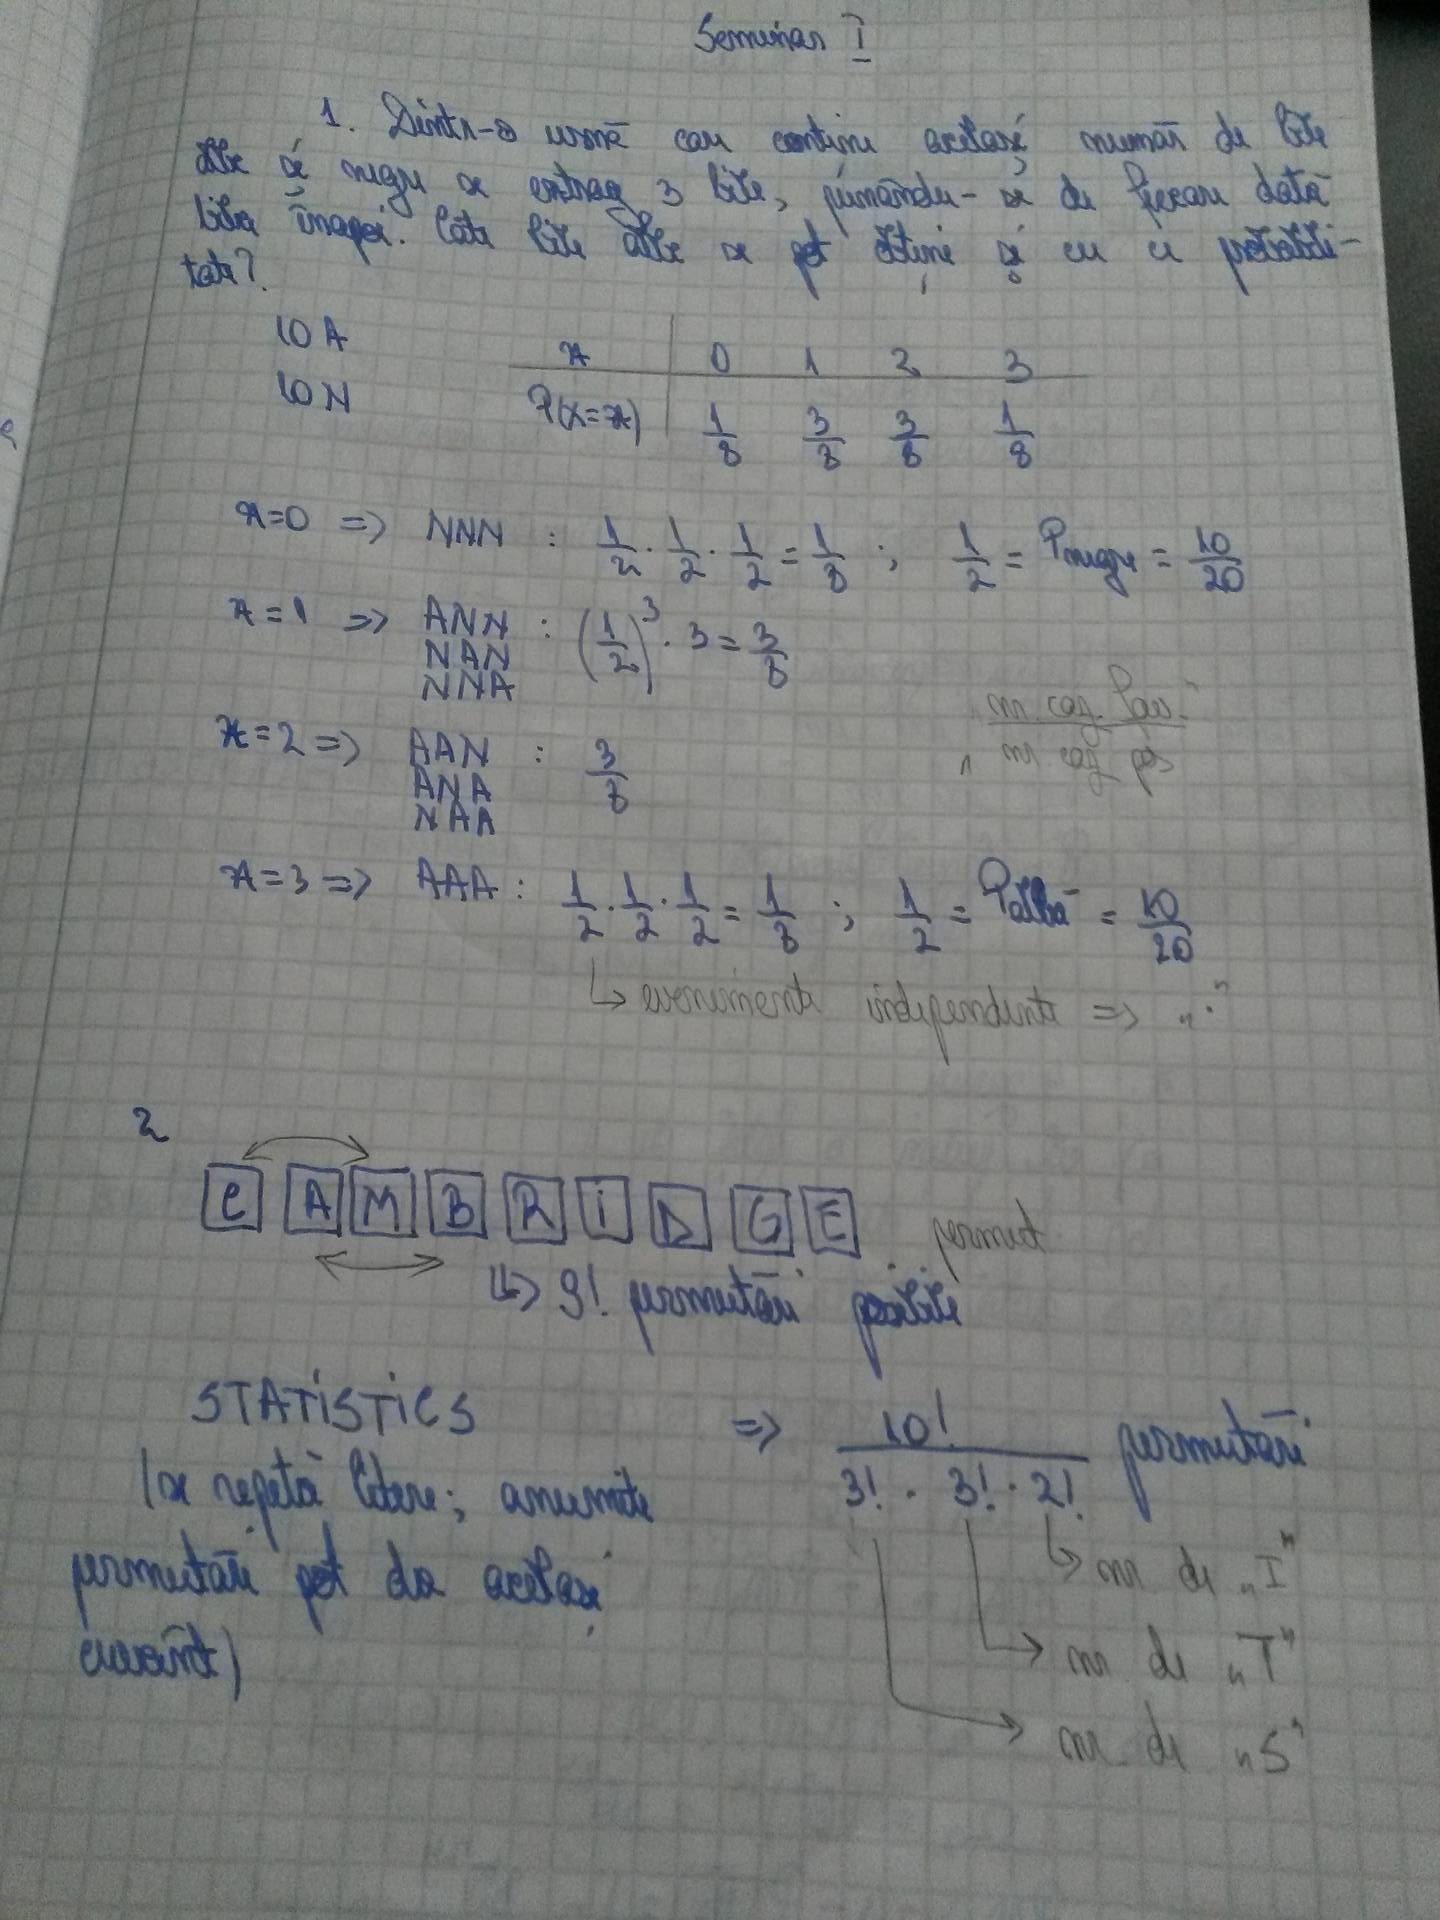 Seminar I
1. Dintr-o urnă care conține același număr de bile
albe și negre se extrag 3 bile, punându-se de fiecare dată
bila înapoi. Câte bile albe se pot obține și cu ce probabili-
tate?
10 A
x | 0 1 2 3
10 N
P(X=x) | 1/8 3/8 3/8 1/8
x=0 => NNN : 1/2 · 1/2 · 1/2 = 1/8 ; 1/2 = Pnegre = 10/20
x=1 => ANN : (1/2)³ · 3 = 3/8
NAN
NNA
nr. caz. fav.
nr caz pos
x=2 => AAN : 3/8
ANA
NAA
x=3 => AAA : 1/2 · 1/2 · 1/2 = 1/8 ; 1/2 = Palbă = 10/20
↳ evenimente independente => „·”
2
C A M B R I D G E
permut
↳> 9! permutări posibile
STATISTICS => 10!/(3! · 3! · 2!) permutări
(se repetă litere; anumite
permutări pot da același
cuvânt)
↳ nr de „I”
→ nr de „T”
→ nr de „S”